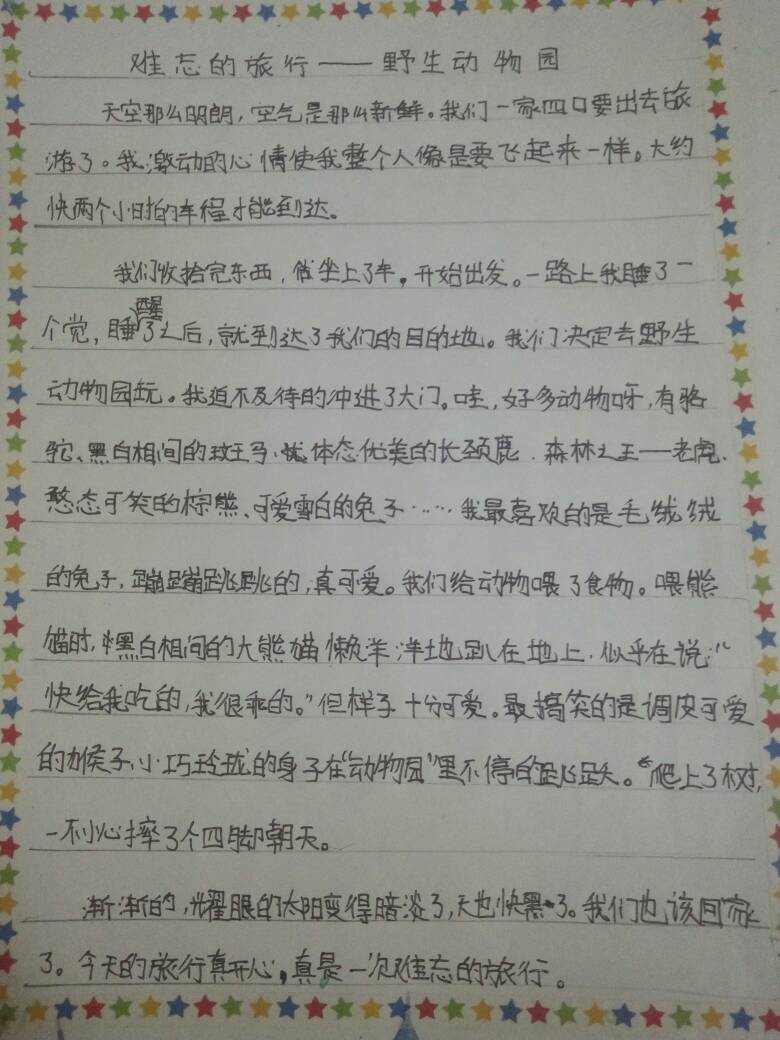 难忘的旅行——野生动物园
天空那么明朗，空气是那么新鲜。我们一家四口要出去旅
游了。我激动的心情使我整个人像是要飞起来一样。大约
快两个小时的车程才能到达。
我们收拾完东西，坐上了车，开始出发。一路上我睡了一
个觉，睡醒了之后，就到达了我们的目的地。我们决定去野生
动物园玩。我迫不及待的冲进了大门。哇，好多动物呀，有骆
驼、黑白相间的斑马、体态优美的长颈鹿、森林之王——老虎、
憨态可笑的棕熊、可爱雪白的兔子……我最喜欢的是毛绒绒
的兔子，蹦蹦跳跳的，真可爱。我们给动物喂了食物。喂熊
猫时，黑白相间的大熊猫懒洋洋地趴在地上，似乎在说：“
快给我吃的，我很乖的。”但样子十分可爱。最搞笑的是调皮可爱
的猴子，小巧玲珑的身子在“动物园”里不停的跳跃。爬上了树，
一不小心摔了个四脚朝天。
渐渐的，耀眼的太阳变得暗淡了，天也快黑了。我们也该回家
了。今天的旅行真开心，真是一次难忘的旅行。